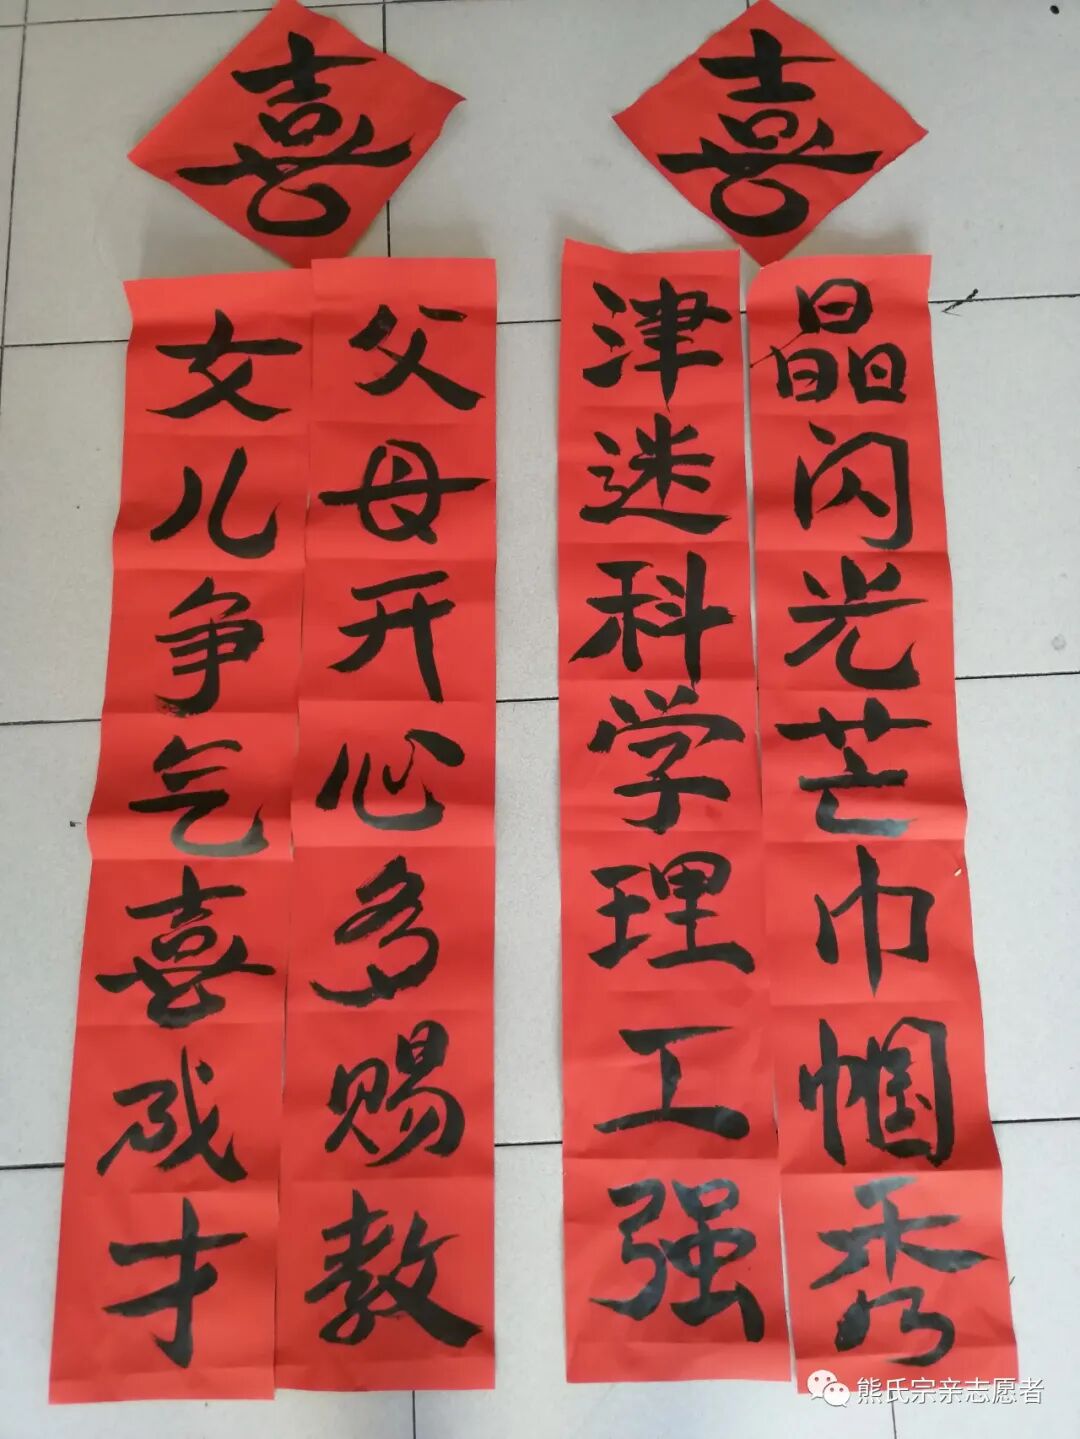 喜
喜
晶闪光芒巾帼秀
津迷科学理工强
父母开心多赐教
女儿争气喜成才
熊氏宗亲志愿者